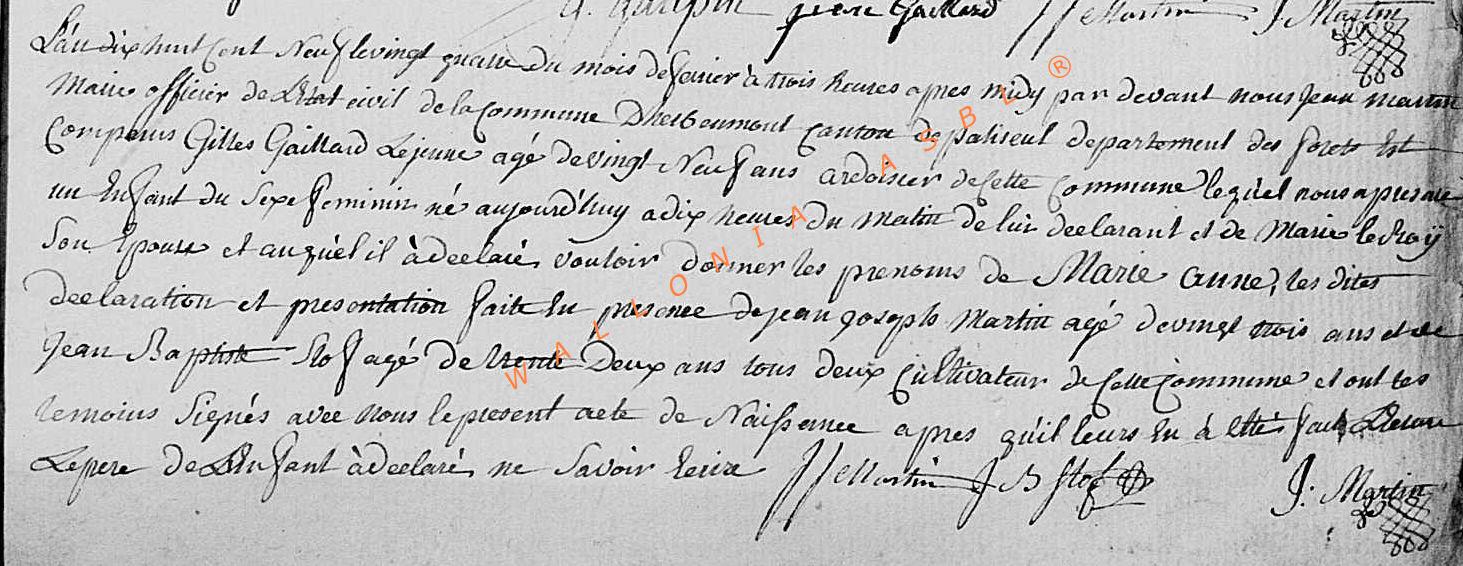 Jean Gaillard JJ Martin J. Martin
L'an dix huit Cent Neuf le vingt quatre du mois de fevrier à trois heures apres midy par devant nous Jean Martin
Maire officier de L'Etat civil de la Commune D'herbeumont Canton de paliseul departement des forets Est
Comparus Gilles Gaillard Lejeune agé de vingt Neuf ans ardoisier de Cette Commune lequel nous a presenté
un Enfant du Sexe feminin né aujourd'huy a dix heures du matin de lui declarant et de Marie le Roÿ
Son Epouse et auquel il à declaré vouloir donner les prenoms de Marie anne, les dites
declaration et presentation faite En presence de jean joseph Martin agé de vingt trois ans et de
Jean Baptiste Stof agé de trente Deux ans tous deux Cultivateur de Cette Commune et ont les
temoins Signés avec nous le present acte de Naissance apres qu'il leurs En à Etté fait Lecture
Le pere de L'Enfant à declaré ne Savoir Ecrire JJ Martin J B Stof J. Martin
WALLONIA ASBL ®